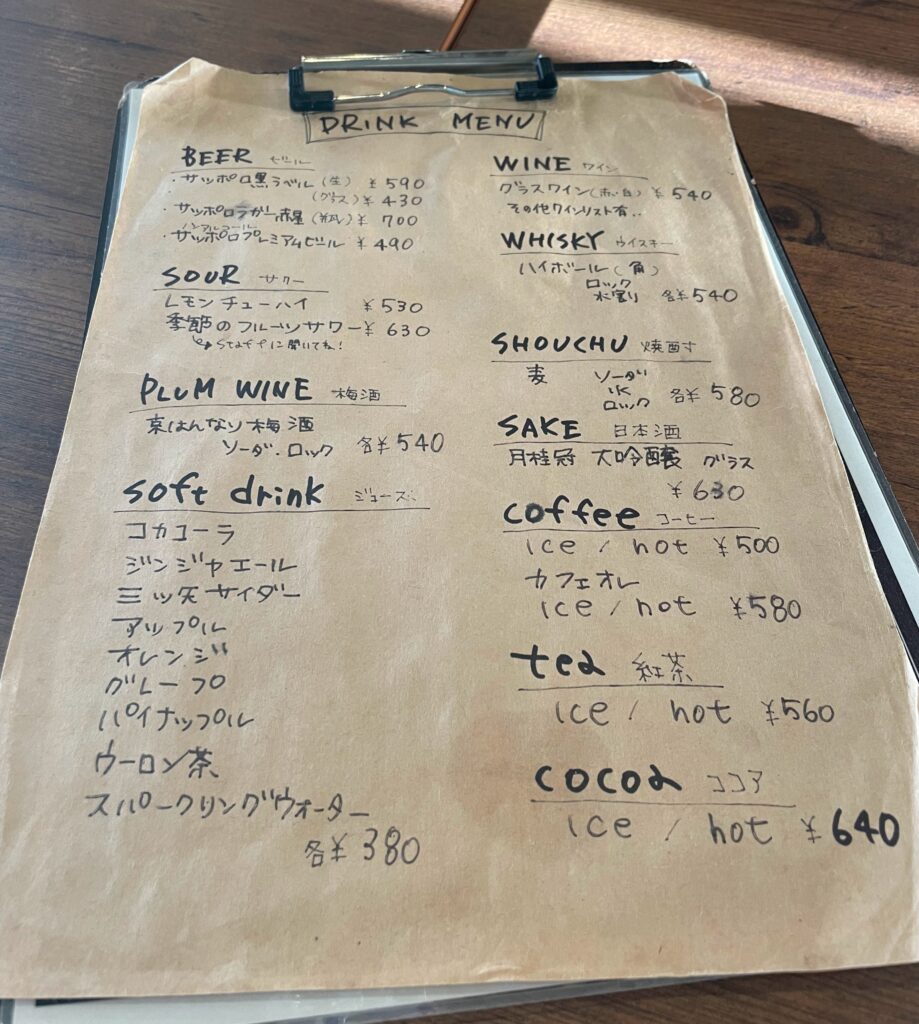 DRINK MENU
BEER ビール
・サッポロ黒ラベル(生) ¥590
(グラス) ¥430
・サッポロラガー赤星(瓶) ¥700
ノンアルコール
・サッポロプレミアムビール ¥490
SOUR サワー
レモンチューハイ ¥530
季節のフルーツサワー ¥630
staffに聞いてね!
PLUM WINE 梅酒
京はんなり梅酒
ソーダ・ロック 各¥540
soft drink ジュース
コカコーラ
ジンジャエール
三ツ矢サイダー
アップル
オレンジ
グレープ
パイナップル
ウーロン茶
スパークリングウォーター
各¥380
WINE ワイン
グラスワイン(赤・白) ¥540
その他ワインリスト有..
WHISKY ウイスキー
ハイボール(角)
ロック
水割り 各¥540
SHOUCHU 焼酎
麦 ソーダ
水
ロック 各¥580
SAKE 日本酒
月桂冠 大吟醸 グラス
¥630
coffee コーヒー
ice / hot ¥500
カフェオレ
ice / hot ¥580
tea 紅茶
ice / hot ¥560
cocoa ココア
ice / hot ¥640